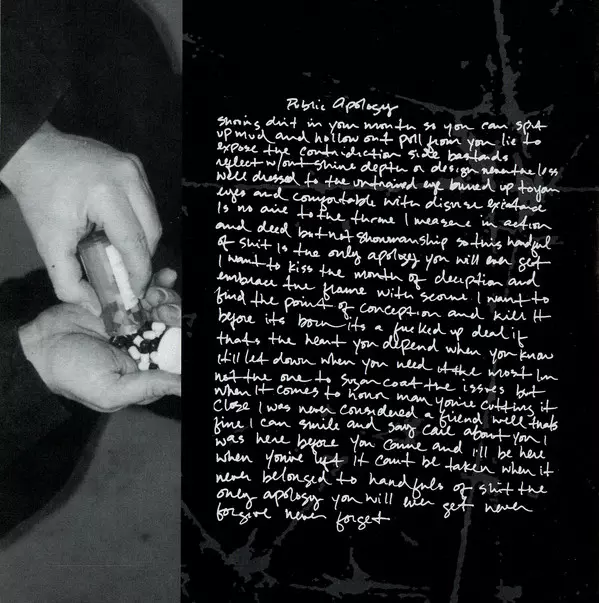 Public Apology
shoving dirt in your mouth so you can spit
up mud and hollow out pull from you lie to
expose the contridiction side bastards
reflect w/out shine depth or design never the less
well dressed to the untrained eye buried up to your
eyes and comfortable with disguse existance
Is no aire to the throne I measure in action
and deed but not showmanship so this handful
of shit Is the only apology you will ever get
I want to kiss the mouth of deception and
embrace the flame with scorne I want to
find the point of conception and kill It
before its born its a fucked up deal if
thats the heart you depend when you know
It'll let down when you need it the most Im
not the one to sugar coat the issues but
when It comes to honor man you're cutting it
close I was never considered a friend well thats
fine I can smile and say call about you I
was here before you came and I'll be here
when you've left It cant be taken when it
never belonged to handfuls of shit the
only apology you will ever get never
forgive never forget